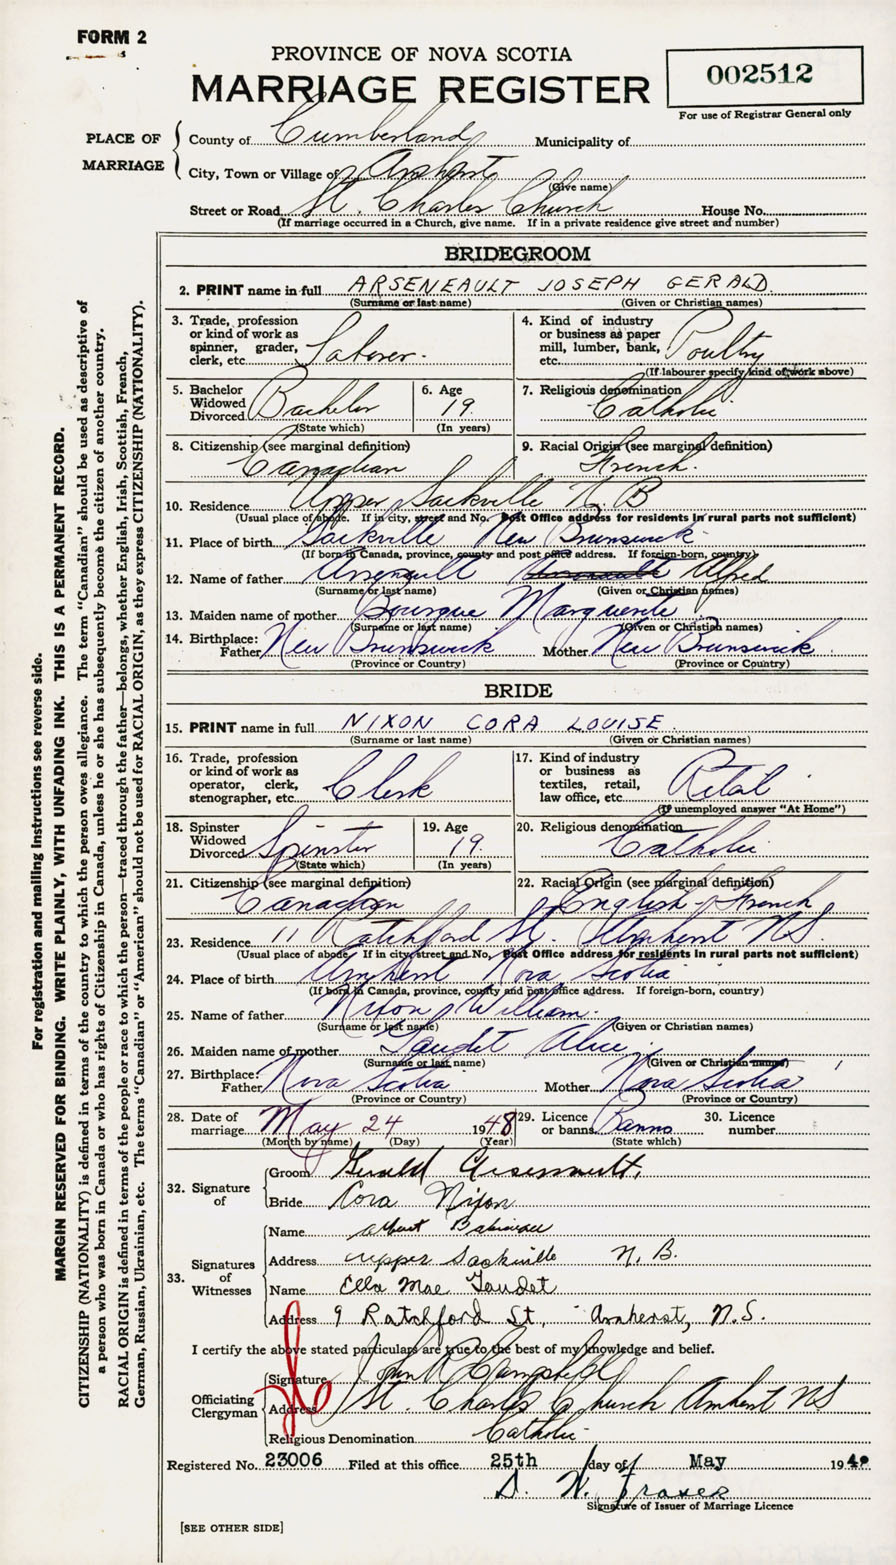 FORM 2
PROVINCE OF NOVA SCOTIA
MARRIAGE REGISTER
002512
For use of Registrar General only
PLACE OF MARRIAGE
County of Cumberland Municipality of
City, Town or Village of Amherst
(Give name)
Street or Road St. Charles Church House No.
(If marriage occurred in a Church, give name. If in a private residence give street and number)
BRIDEGROOM
2. PRINT name in full ARSENEAULT JOSEPH GERALD
(Surname or last name) (Given or Christian names)
3. Trade, profession or kind of work as spinner, grader, clerk, etc. Laborer.
4. Kind of industry or business as paper mill, lumber, bank, etc. Poultry
(If labourer specify kind of work above)
5. Bachelor Widowed Divorced Bachelor
(State which)
6. Age 19
(In years)
7. Religious denomination Catholic
8. Citizenship (see marginal definition) Canadian
9. Racial Origin (see marginal definition) French.
10. Residence Upper Sackville N. B
(Usual place of abode. If in city, street and No. Post Office address for residents in rural parts not sufficient)
11. Place of birth Sackville New Brunswick
(If born in Canada, province, county and post office address. If foreign-born, country)
12. Name of father Arsenault Alfred
(Surname or last name) (Given or Christian names)
13. Maiden name of mother Bourque Marguerite
(Surname or last name) (Given or Christian names)
14. Birthplace: Father New Brunswick Mother New Brunswick
(Province or Country) (Province or Country)
BRIDE
15. PRINT name in full NIXON CORA LOUISE
(Surname or last name) (Given or Christian names)
16. Trade, profession or kind of work as operator, clerk, stenographer, etc. Clerk
17. Kind of industry or business as textiles, retail, law office, etc. Retail
(If unemployed answer "At Home")
18. Spinster Widowed Divorced Spinster
(State which)
19. Age 19.
(In years)
20. Religious denomination Catholic
21. Citizenship (see marginal definition) Canadian
22. Racial Origin (see marginal definition) English-French
23. Residence 11 Ratchford St. Amherst N.S.
(Usual place of abode. If in city, street and No. Post Office address for residents in rural parts not sufficient)
24. Place of birth Amherst Nova Scotia
(If born in Canada, province, county and post office address. If foreign-born, country)
25. Name of father Nixon William.
(Surname or last name) (Given or Christian names)
26. Maiden name of mother Gaudet Alice
(Surname or last name) (Given or Christian names)
27. Birthplace: Father Nova Scotia Mother Nova Scotia
(Province or Country) (Province or Country)
28. Date of marriage May 24 1948
(Month by name) (Day) (Year)
29. Licence or banns Banns
(State which)
30. Licence number
32. Signature of
Groom Gerald Arsenault.
Bride Cora Nixon
33. Signatures of Witnesses
Name Albert Babineau
Address upper Sackville N. B.
Name Ella Mae Gaudet
Address 9 Ratchford St, Amherst, N.S.
I certify the above stated particulars are true to the best of my knowledge and belief.
Officiating Clergyman
Signature John R Campbell
Address St. Charles Church Amherst NS
Religious Denomination Catholic
Registered No. 23006 Filed at this office 25th day of May 194
D. W. Fraser
Signature of Issuer of Marriage Licence
[SEE OTHER SIDE]
For registration and mailing instructions see reverse side.
MARGIN RESERVED FOR BINDING. WRITE PLAINLY, WITH UNFADING INK. THIS IS A PERMANENT RECORD.
CITIZENSHIP (NATIONALITY) is defined in terms of the country to which the person owes allegiance. The term "Canadian" should be used as descriptive of
a person who was born in Canada or who has rights of Citizenship in Canada, unless he or she has subsequently become the citizen of another country.
RACIAL ORIGIN is defined in terms of the people or race to which the person—traced through the father—belongs, whether English, Irish, Scottish, French,
German, Russian, Ukrainian, etc. The terms "Canadian" or "American" should not be used for RACIAL ORIGIN, as they express CITIZENSHIP (NATIONALITY).